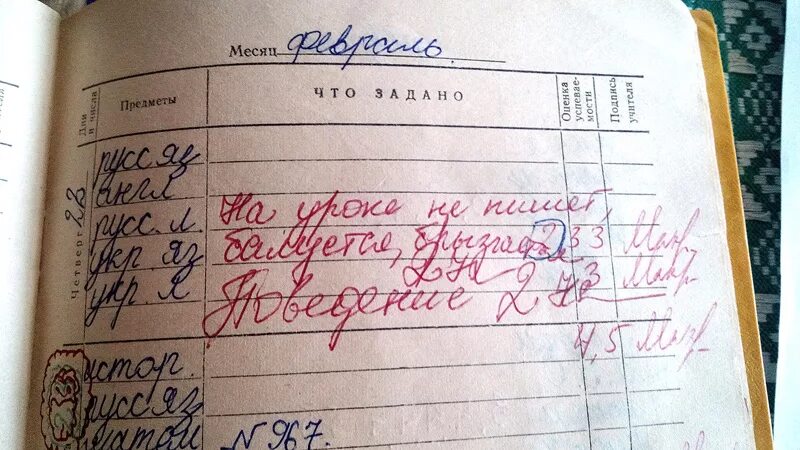 Месяц февраль
Дни и числа Предметы ЧТО ЗАДАНО Оценка успеваемости Подпись учителя
русс яз
англ
русс. л. На уроке не пишет,
укр яз балуется, 2 3 3
укр. л
Поведение 2
4,5
Четверг 22
истор.
русс яз
матем N 967.